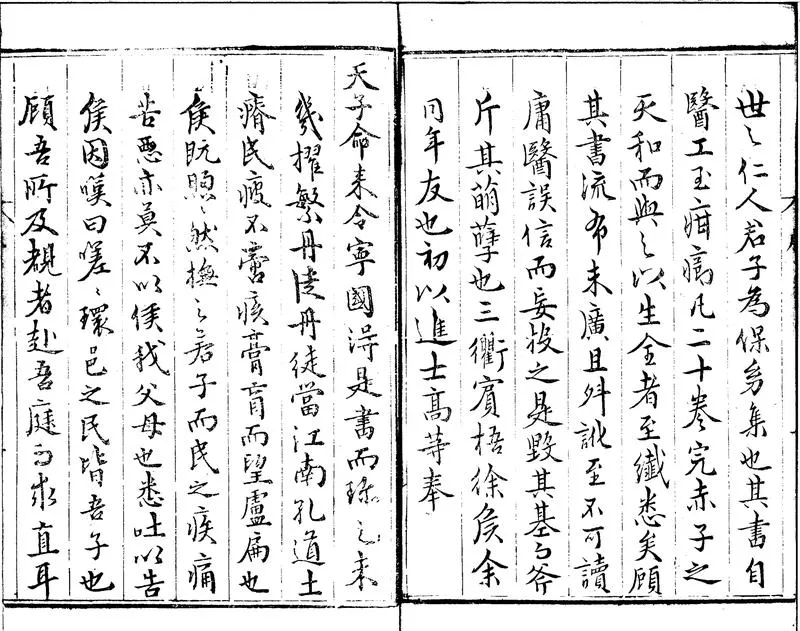 世之仁人君子為保幼集也其書自
醫工至疳瘍凡二十卷完赤子之
天和而與之以生全者至纖悉矣顧
其書流布未廣且舛訛至不可讀
庸醫誤信而妄投之是毀其基而斧
斤其萌孽也三衢賓梧徐矦余
同年友也初以進士高等奉
天子命來令寧國得是書而珍之未
幾擢繁丹徒丹徒當江南孔道土
瘠民疲不啻痎膏肓而望盧扁也
侯旣煦〻然撫之若子而民之疾痛
苦惡亦莫不以侯我父母也悉吐以告
侯因嘆曰嗟〻環邑之民皆吾子也
顧吾所及覩者赴吾庭而求直耳